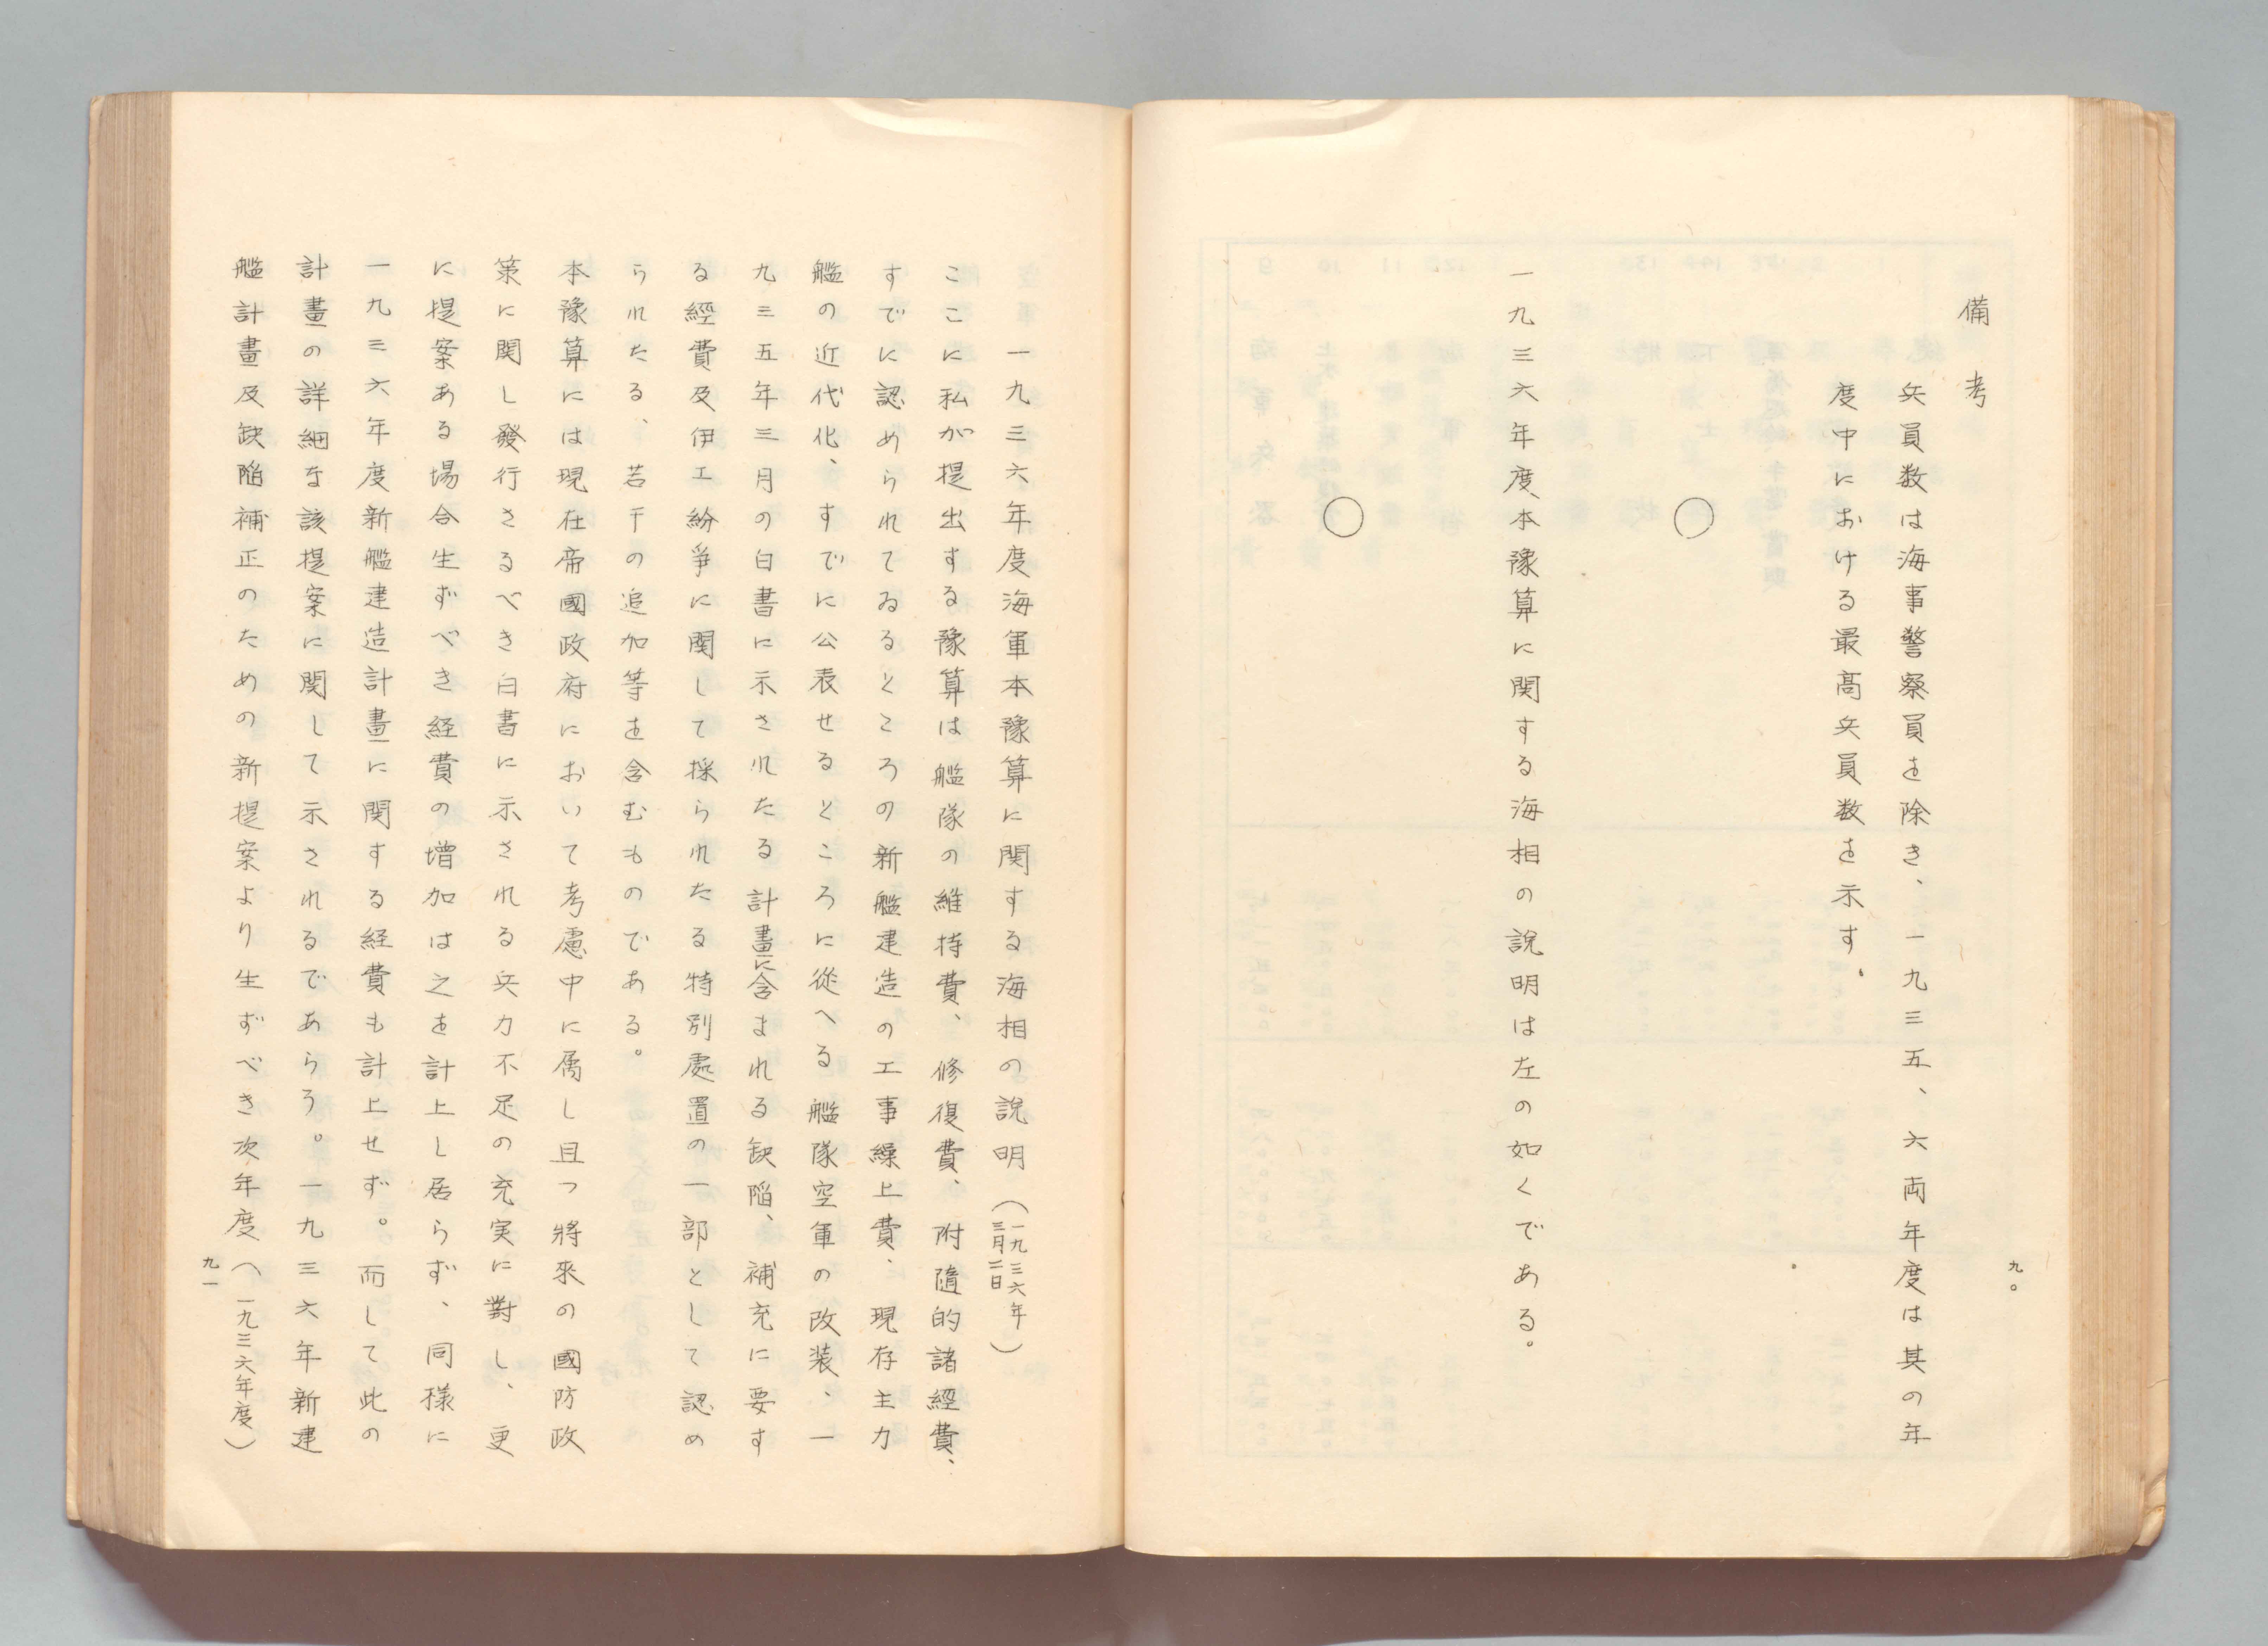 九〇
備考
兵員数は海事警察員を除き、一九三五、六両年度は其の年
度中における最高兵員数を示す。
○
一九三六年度本豫算に関する海相の説明は左の如くである。
○
一九三六年度海軍本豫算に関する海相の説明（一九三六年三月二日）
ここに私が提出する豫算は艦隊の維持費、修復費、附随的諸經費、
すでに認められてゐるところの新艦建造の工事繰上費、現存主力
艦の近代化、すでに公表せるところに從へる艦隊空軍の改装、一
九三五年三月の白書に示されたる計畫に含まれる缺陥、補充に要す
る經費及伊エ紛爭に関して採られたる特別處置の一部として認め
られたる、若干の追加等を含むものである。
本豫算には現在帝國政府において考慮中に属し且つ將來の國防政
策に関し發行さるべき白書に示される兵力不足の充実に對し、更
に提案ある場合生ずべき経費の増加は之を計上し居らず、同様に
一九三六年度新艦建造計畫に関する経費も計上せず。而して此の
計畫の詳細な該提案に関して示されるであらう。一九三六年新建
艦計畫及缺陥補正のための新提案より生ずべき次年度（一九三六年度）
九一